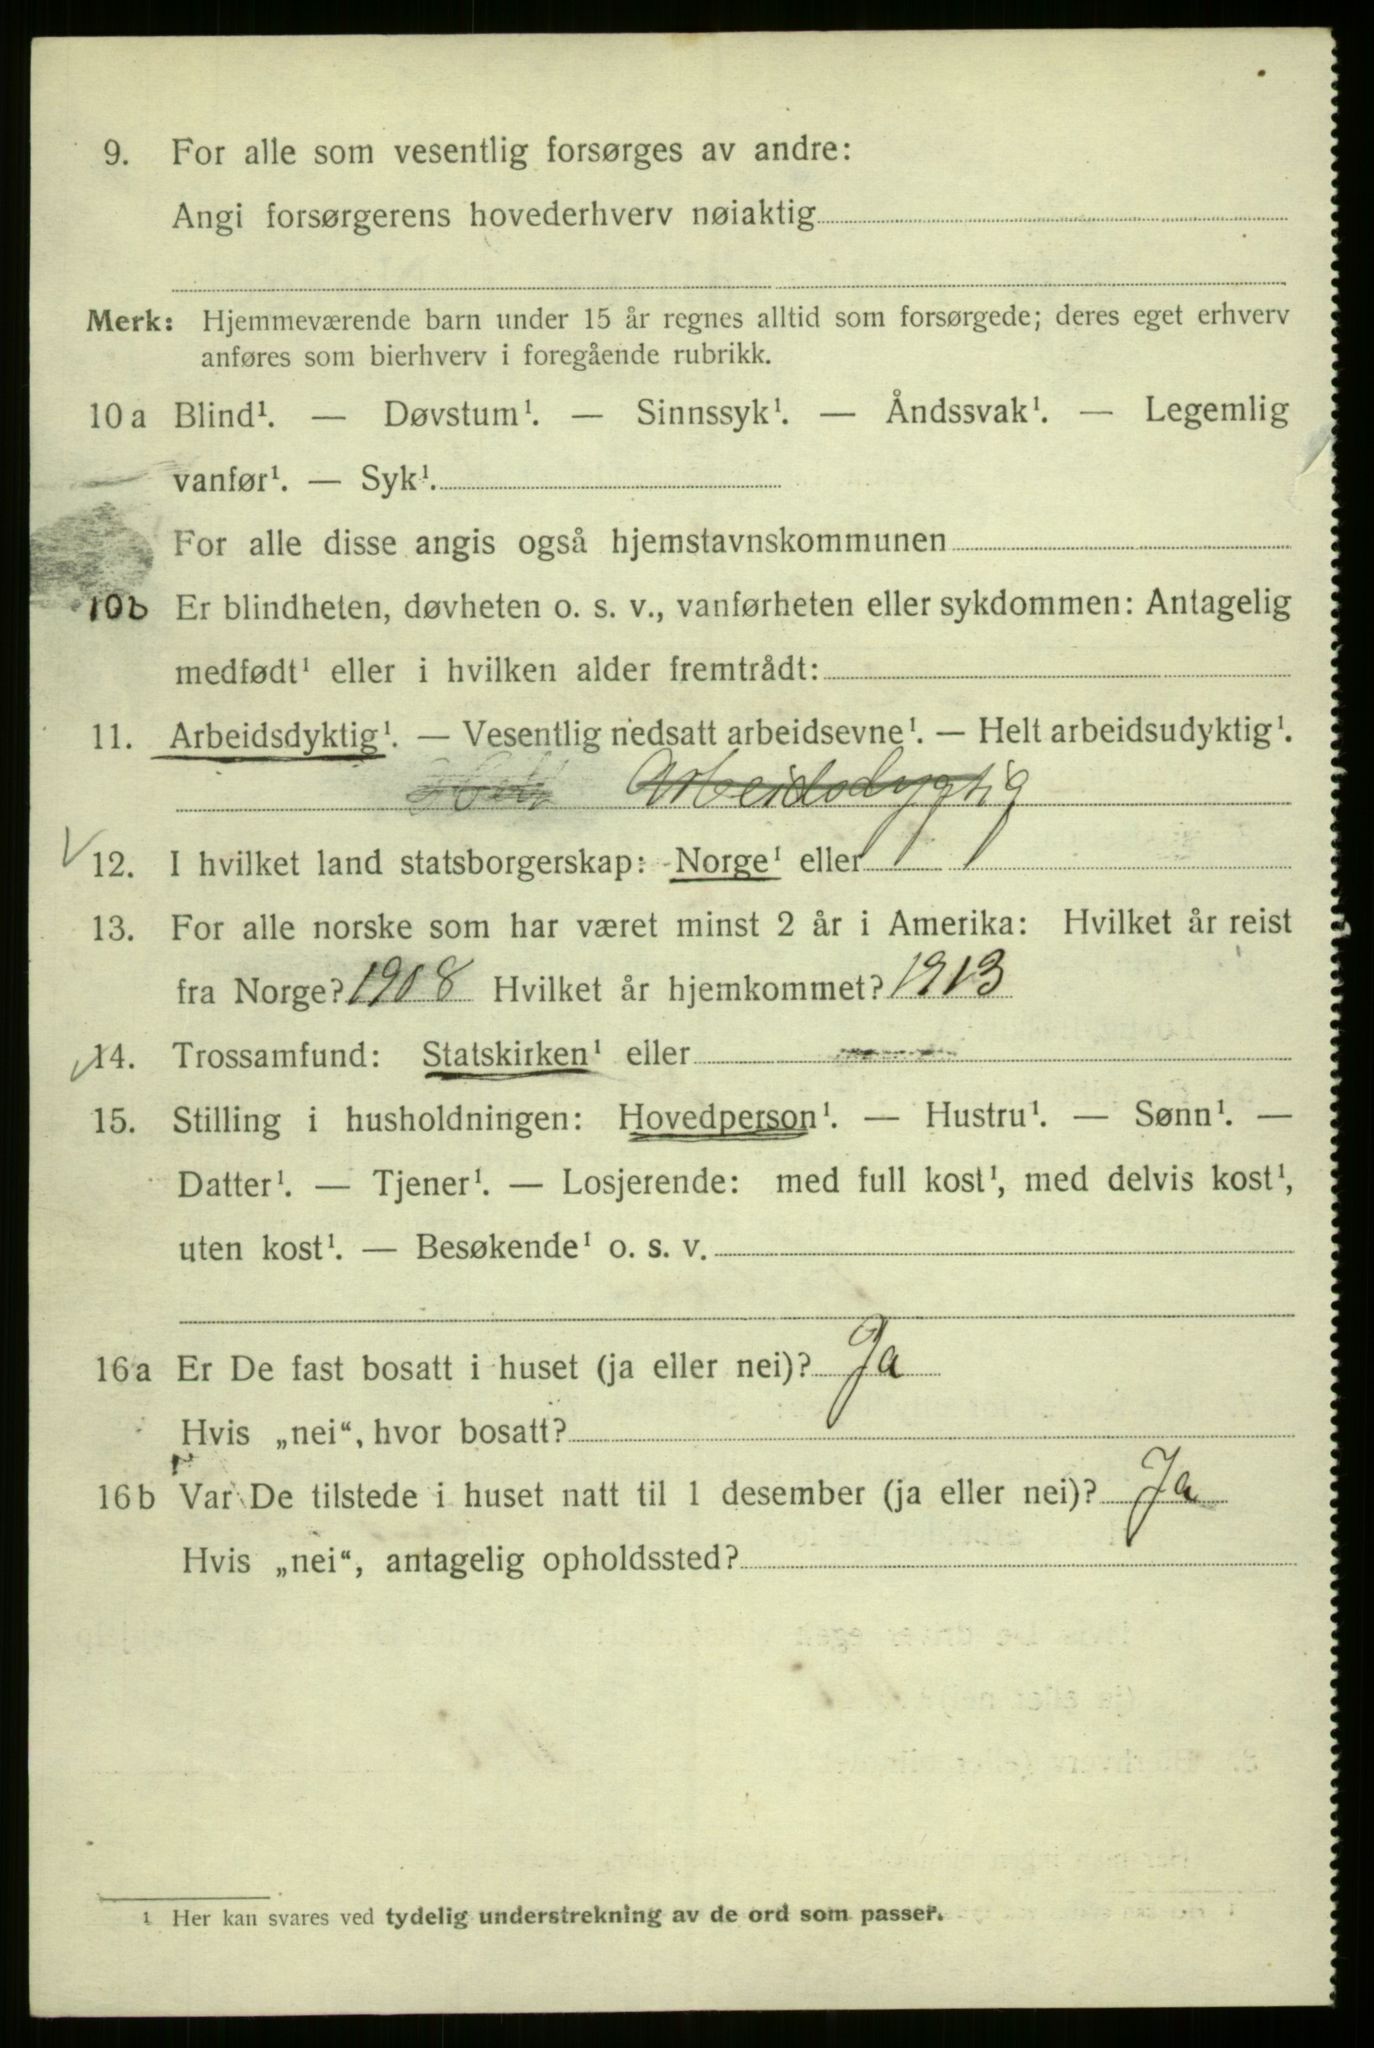 9. For alle som vesentlig forsørges av andre:
Angi forsørgerens hovederhverv nøiaktig
Merk: Hjemmeværende barn under 15 år regnes alltid som forsørgede; deres eget erhverv
anføres som bierhverv i foregående rubrikk.
10 a Blind¹. — Døvstum¹. — Sinnssyk¹. — Åndssvak¹. — Legemlig
vanfør¹. — Syk¹.
For alle disse angis også hjemstavnskommunen
10b Er blindheten, døvheten o. s. v., vanførheten eller sykdommen: Antagelig
medfødt¹ eller i hvilken alder fremtrådt:
11. Arbeidsdyktig¹. — Vesentlig nedsatt arbeidsevne¹. — Helt arbeidsudyktig¹.
Arbeidsdygtig
12. I hvilket land statsborgerskap: Norge¹ eller
13. For alle norske som har været minst 2 år i Amerika: Hvilket år reist
fra Norge? 1908 Hvilket år hjemkommet? 1913
14. Trossamfund: Statskirken¹ eller
15. Stilling i husholdningen: Hovedperson¹. — Hustru¹. — Sønn¹. —
Datter¹. — Tjener¹. — Losjerende: med full kost¹, med delvis kost¹,
uten kost¹. — Besøkende¹ o. s. v.
16 a Er De fast bosatt i huset (ja eller nei)? Ja
Hvis „nei“, hvor bosatt?
16 b Var De tilstede i huset natt til 1 desember (ja eller nei)? Ja
Hvis „nei“, antagelig opholdssted?
1 Her kan svares ved tydelig understrekning av de ord som passer.